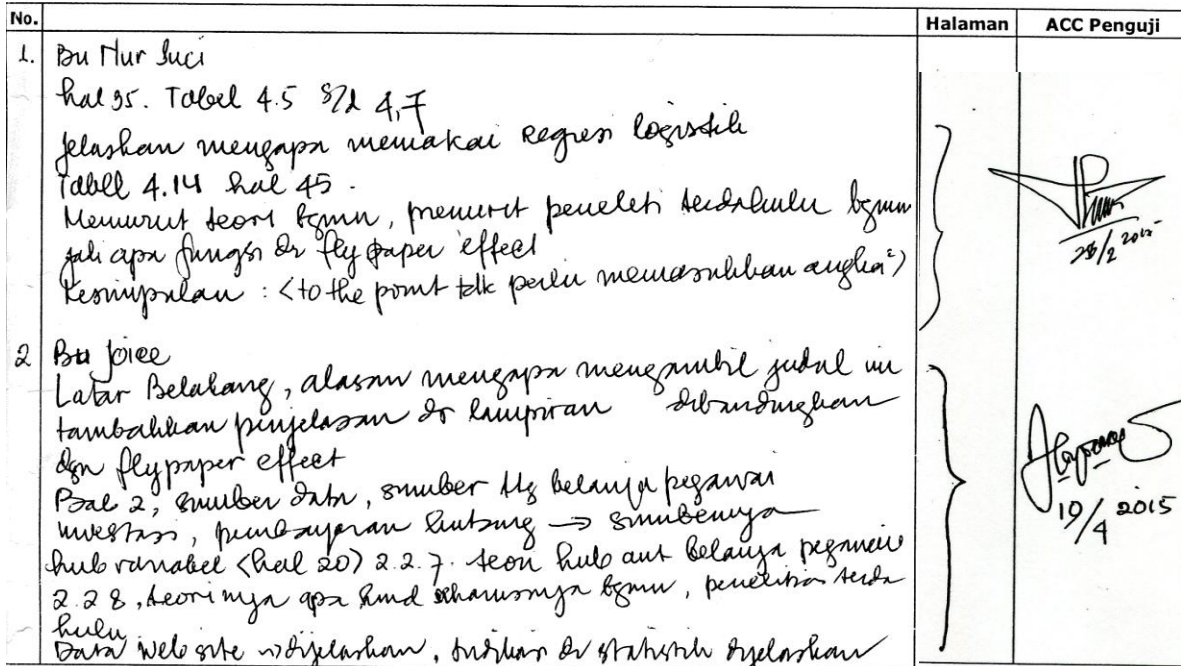 No. Halaman ACC Penguji
1. Bu Nur Suci
hal 35. Tabel 4.5 s/d 4,7
Jelaskan mengapa memakai Regresi logistik
Tabel 4.14 hal 45.
Menurut teori bgmn, menurut peneliti terdahulu bgmn
jadi apa fungsi dr fly paper effect
Kesimpulan : <to the point tdk perlu memasukkan angka²)
28/2 2015
2 Bu Joice
Latar Belakang, alasan mengapa mengambil judul ini
tambahkan penjelasan dr lampiran dibandingkan
dgn flypaper effect
Bab 2, sumber data, sumber ttg belanja pegawai
investasi, pembayaran hutang → sumbernya
hub variabel <hal 20> 2.2.7. teori hub ant Belanja pegawai
2.2.8, teorinya apa seharusnya bgmn, penelitian terda
hulu
Data web site → dijelaskan, dr statistik dijelaskan
19/4 2015